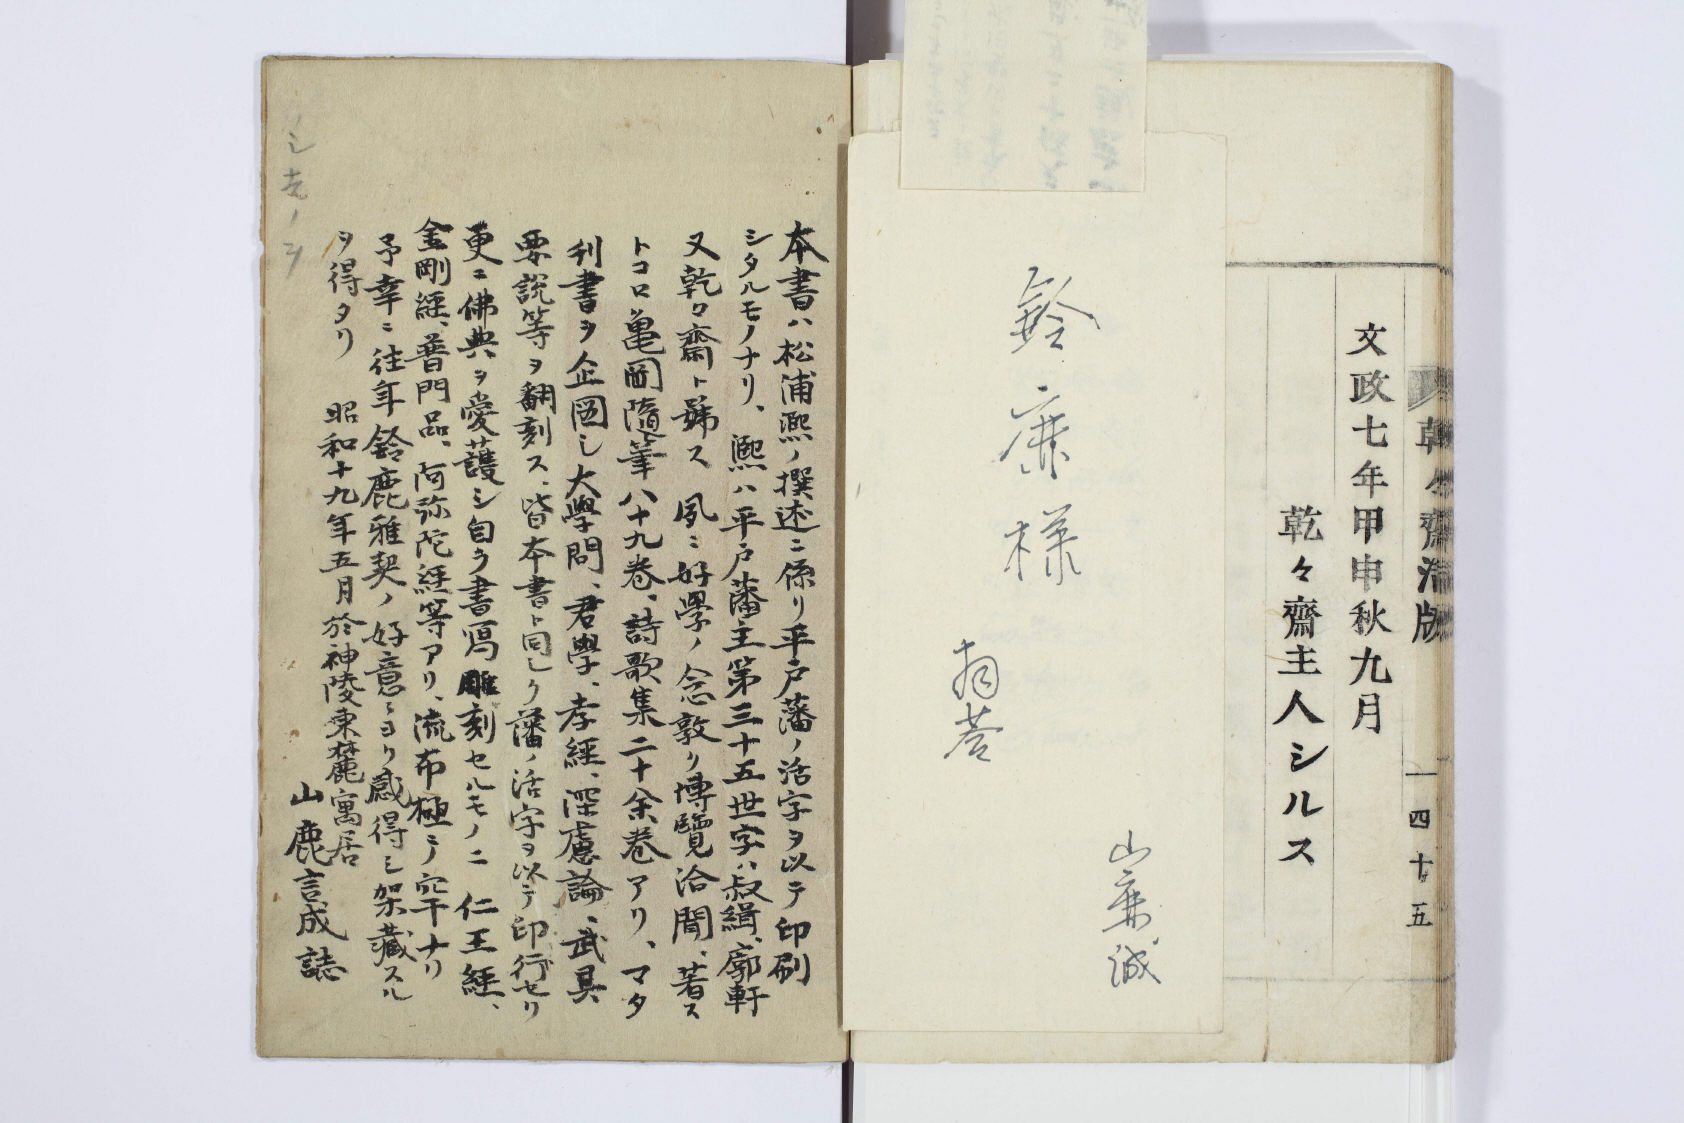 乾々齋活版
一四十五
文政七年甲申秋九月
乾々齋主人シルス
鈴鹿様
山鹿誠
本書ハ松浦熈ノ撰述ニ係リ平戸藩ノ活字ヲ以テ印刷
シタルモノナリ、熈ハ平戸藩主第三十五世字ハ叔緝、廓軒
又乾々齋ト號ス 夙ニ好學ノ念敦ク博覽洽聞、著ス
トコロ亀岡隨筆八十九卷、詩歌集二十余卷アリ、マタ
刊書ヲ企図シ大學問、君學、孝經、深慮論、武具
要説等ヲ翻刻ス、皆本書ト同シク藩ノ活字ヲ以テ印行セリ
更ニ佛典ヲ愛護シ自ラ書寫雕刻セルモノニ 仁王經、
金剛經、普門品、阿弥陀經等アリ、流布極テ罕ナリ
予幸ニ往年鈴鹿雅契ノ好意ニヨリ感得シ架藏スル
ヲ得タリ 昭和十九年五月於神陵東麓寓居
山鹿誠誌